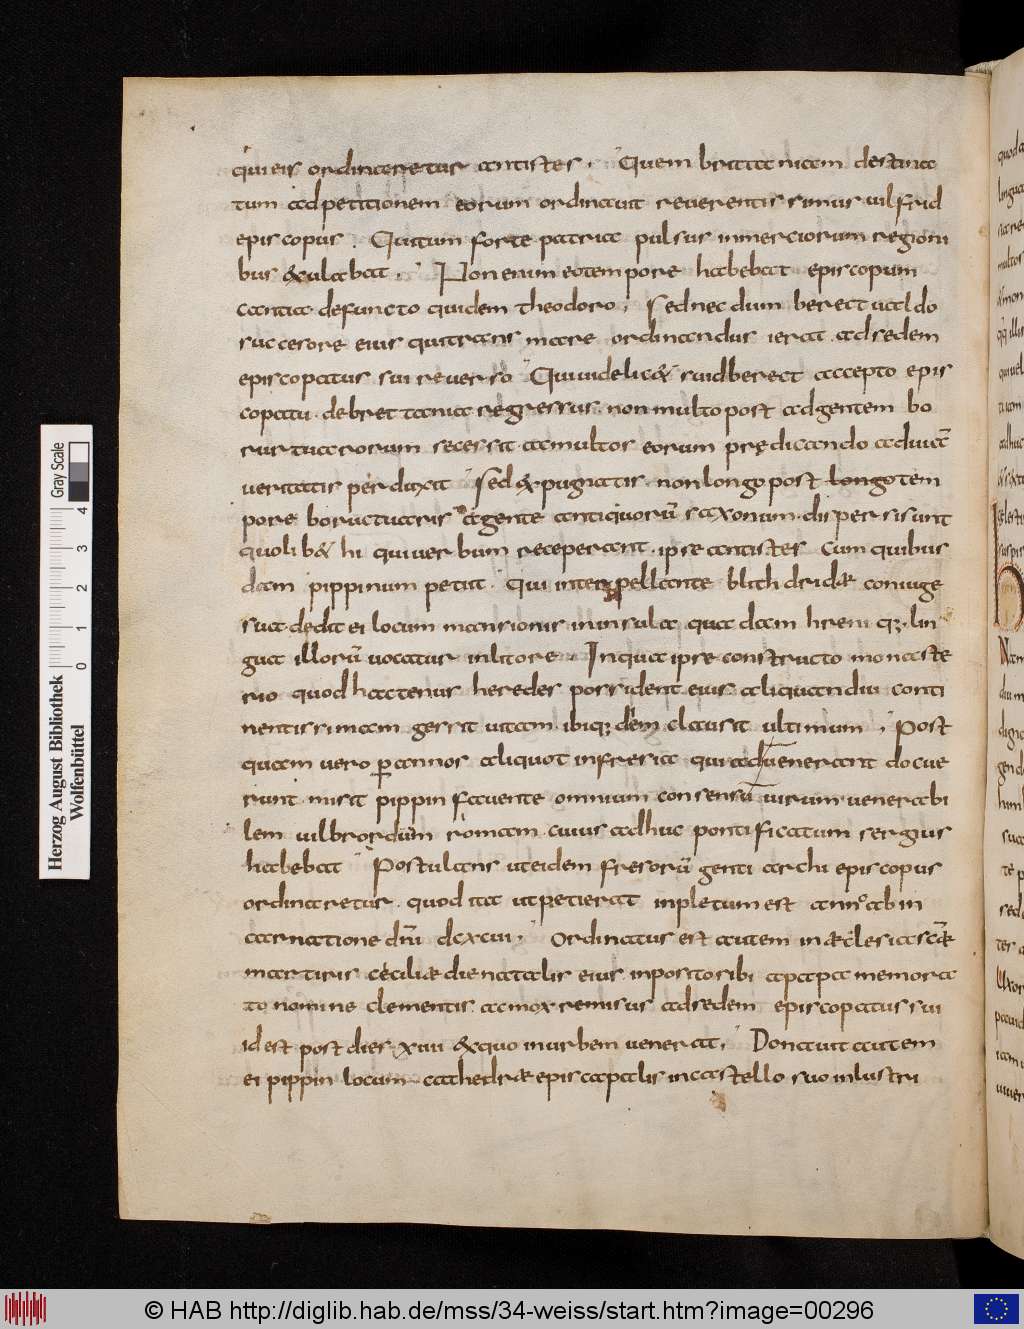 qui eis ordinaretur antistes. Quem brittaniam destina
tum ad petitionem eorum ordinauit reuerentissimus uilfrid
episcopus. Qui tum forte patria pulsus in merciorum regioni
bus exulabat. Non enim eo tempore habebat episcopum
cantia defuncto quidem theodoro, sed nec dum berectualdo
successore eius qui trans mare ordinandus ierat ad sedem
episcopatus sui reuerso Qui uidelicet suidberect accepto epis
copatu. de brettania regressus. non multo post ad gentem bo
ructuarorum secessit. ac multos eorum prędicando ad uiā
ueritatis perduxit Sed expugnatis. non longo post longo tem
pore boructuaris a gente antiquorū saxonum. dispersi sunt
quolibet hi qui uerbum receperant. ipse antistes cum quibus
dam pippinum petiit. Qui interpellante blithdridae coniuge
sua. dedit ei locum mansionis in insula quadam hreni q;. lin
gua illorū uocatur in litore. In qua ipse constructo monaste
rio quod hactenus heredes possident eius. aliquandiu conti
nentissimam gessit uitam. ibiq; diem clausit ultimum. Post
quam uero p annos aliquot in fresia qui aduenerant docue
runt. misit pippin fauente omnium consensu uirum uenerabi
lem uilbrordum romam. cuius adhuc pontificatum sergius
habebat Postulans ut eidem fresorū genti archiepiscopus
ordinaretur. quod ita ut petierat inpletum est anno ab in
carnatione dn̄i dcxcui. Ordinatus est autem in aeclesia scāe
martiris ceciliae die natalis eius. inposito sibi a papa memora
to nomine clementis. ac mox remisus ad sedem episcopatus sui
id est post dies xiiii ex quo in urbem uenerat. Donauit autem
ei pippin locum cathedrae episcapalis in castello suo inlustri
Herzog August Bibliothek
Wolfenbüttel
0 1 2 3 4
Gray Scale
© HAB http://diglib.hab.de/mss/34-weiss/start.htm?image=00296